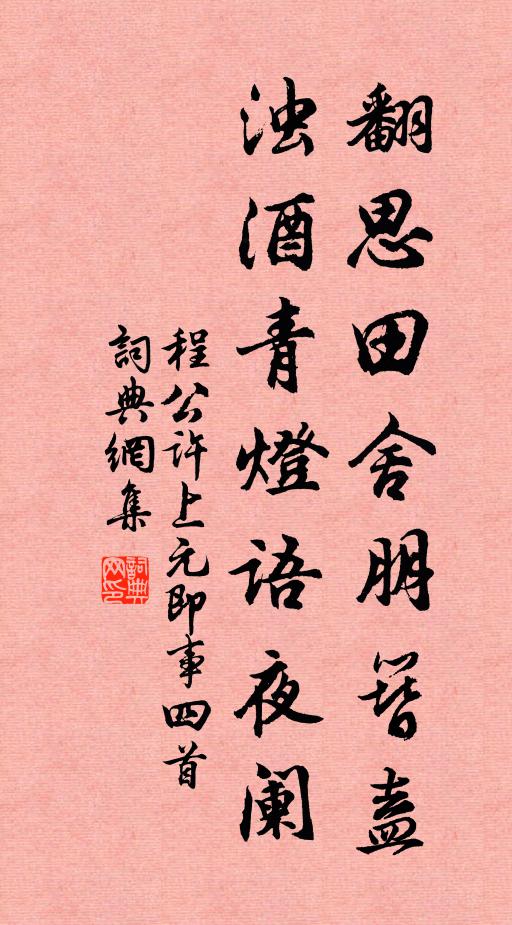 翻思田舍朋簪盍
浊酒青燈语夜阑
程公许上元即事四首
詞典網集
詞典网印